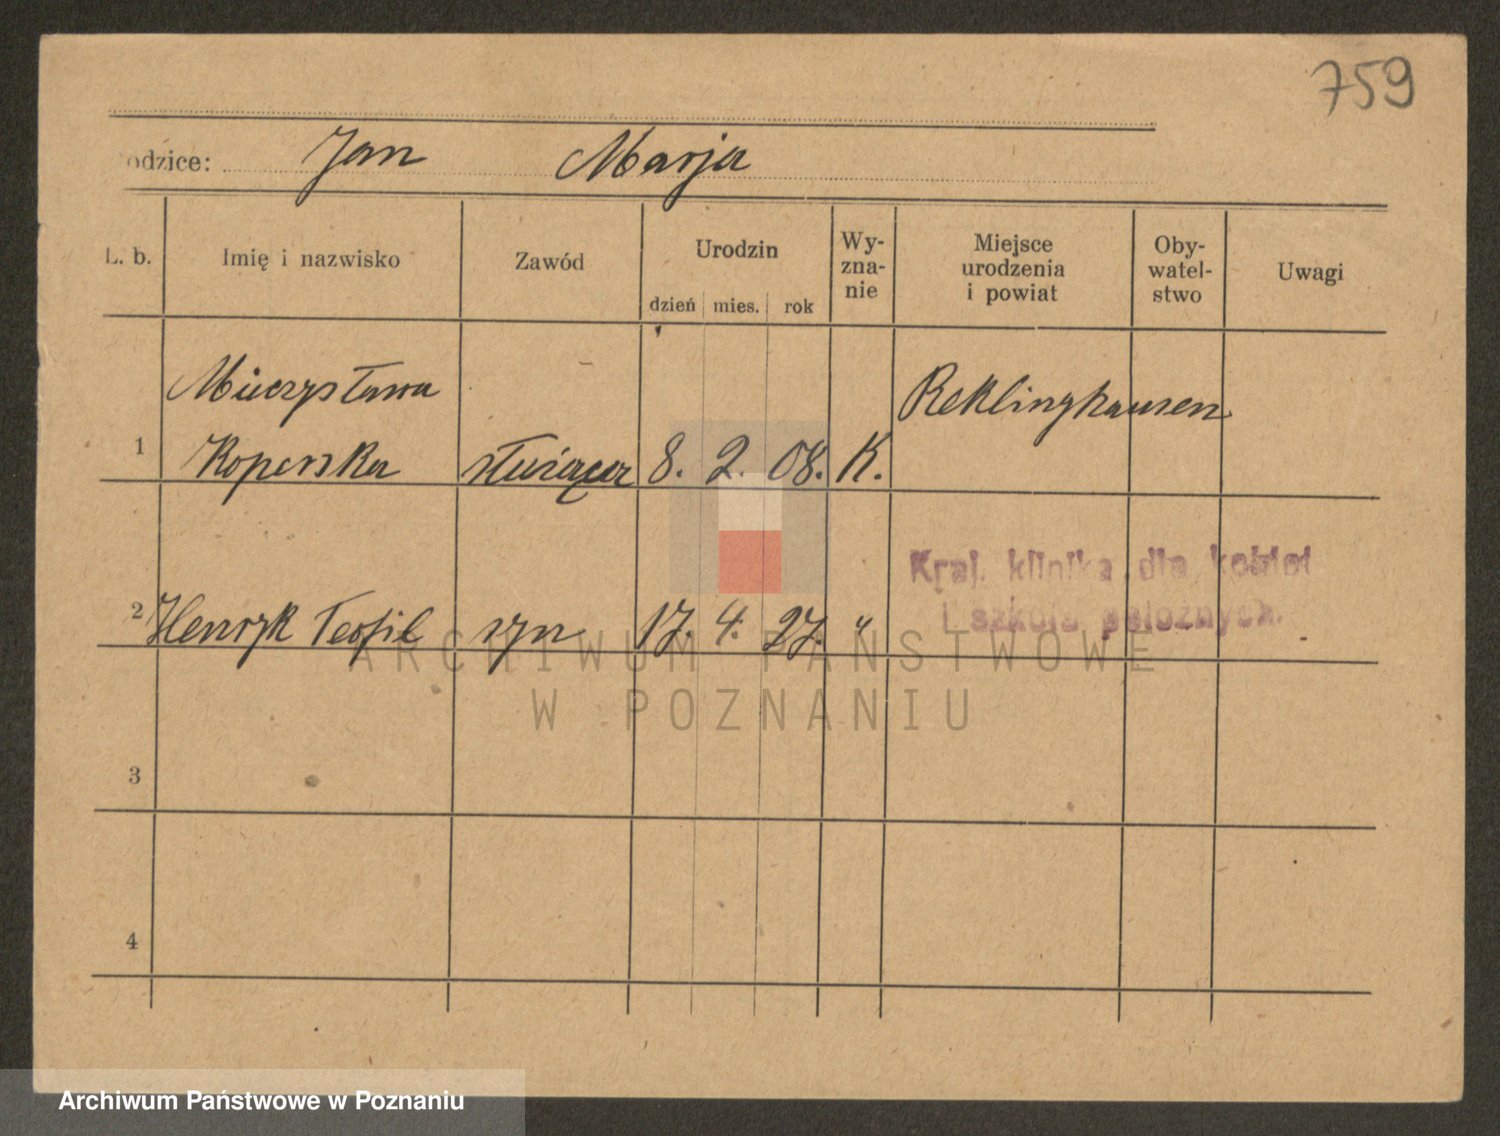 759
odzice: Jan Marja
L. b. Imię i nazwisko Zawód Urodzin dzień mies. rok Wy-zna-nie Miejsce urodzenia i powiat Oby-watel-stwo Uwagi
Mieczysława Reklinghausen
1 Koperska służąca 8. 2. 08. K.
Kraj. klinika dla kobiet
i szkoła położnych.
2 Henryk Teofil syn 17. 4. 27. "
ARCHIWUM PAŃSTWOWE
W POZNANIU
3
4
Archiwum Państwowe w Poznaniu